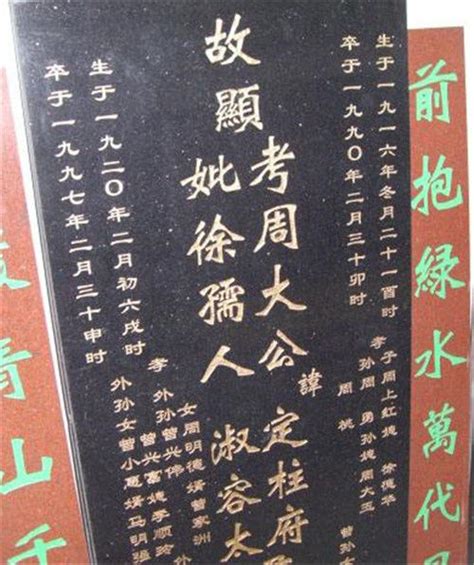 前抱綠水萬代
生于一九一六年冬月二十一酉时
卒于一九九〇年二月三十卯时
孝子周上红媳徐德华
孙周勇孙媳周大玉
周
曾孙
故顯
考周大公諱定柱府
妣徐孺人淑容太
女周明德婿曾家洲
孝外孙曾兴伟
曾兴富媳李顺玲
外孙女曾小婿马明强
外
生于一九二〇年二月初六戌时
卒于一九九七年二月三十申时
青山千